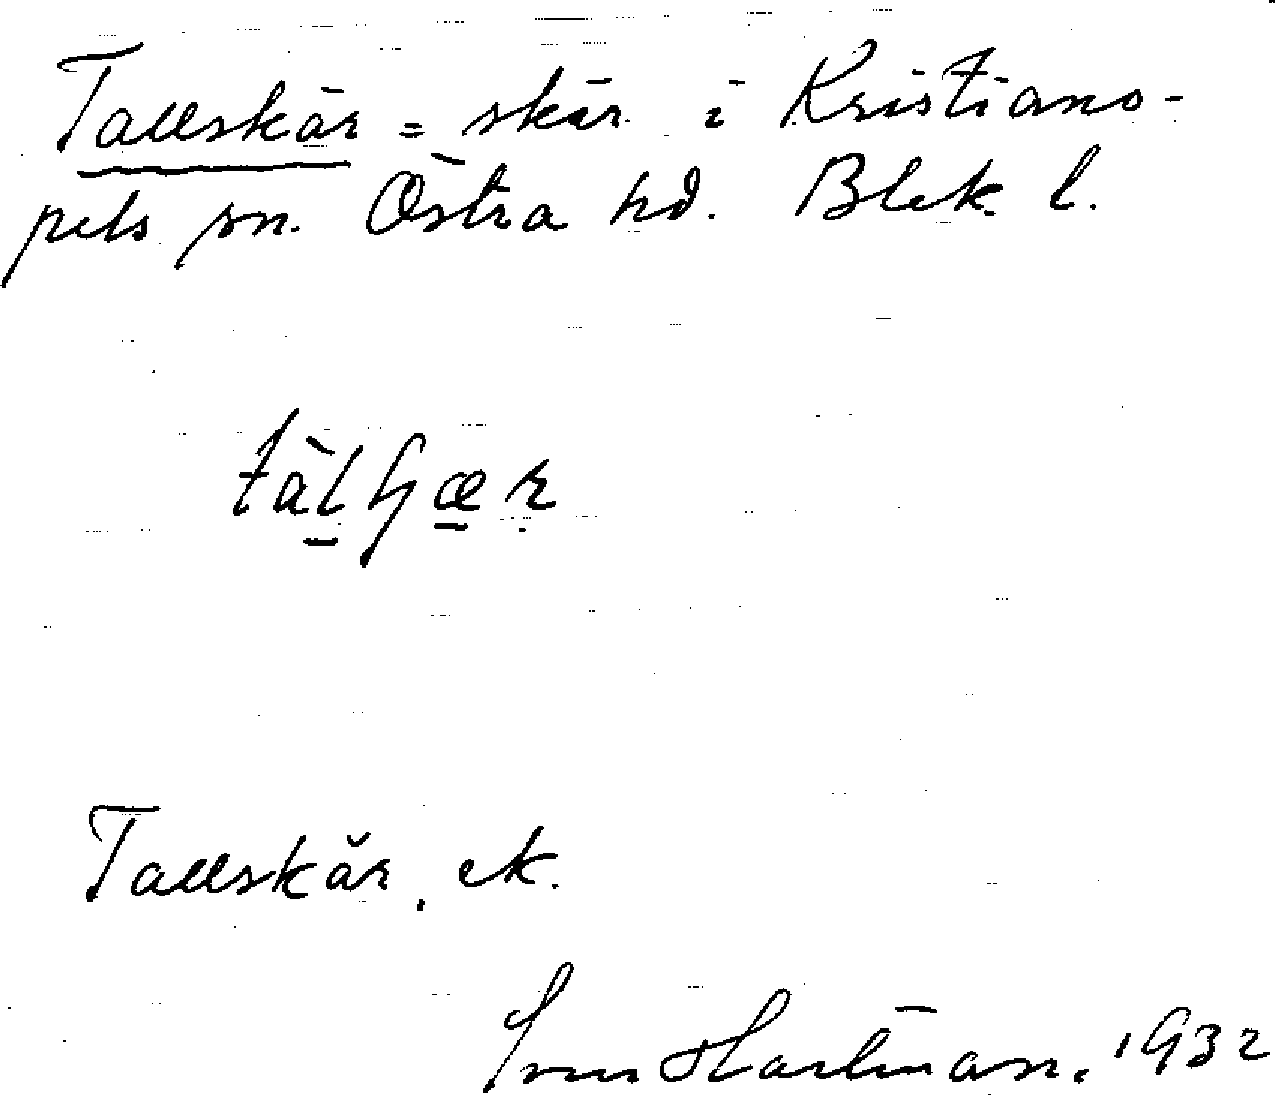 Tallskär = skär i Kristiano-
pels sn. Östra hd. Blek. l.
Tallskär, ek.
Sven Hartman. 1932